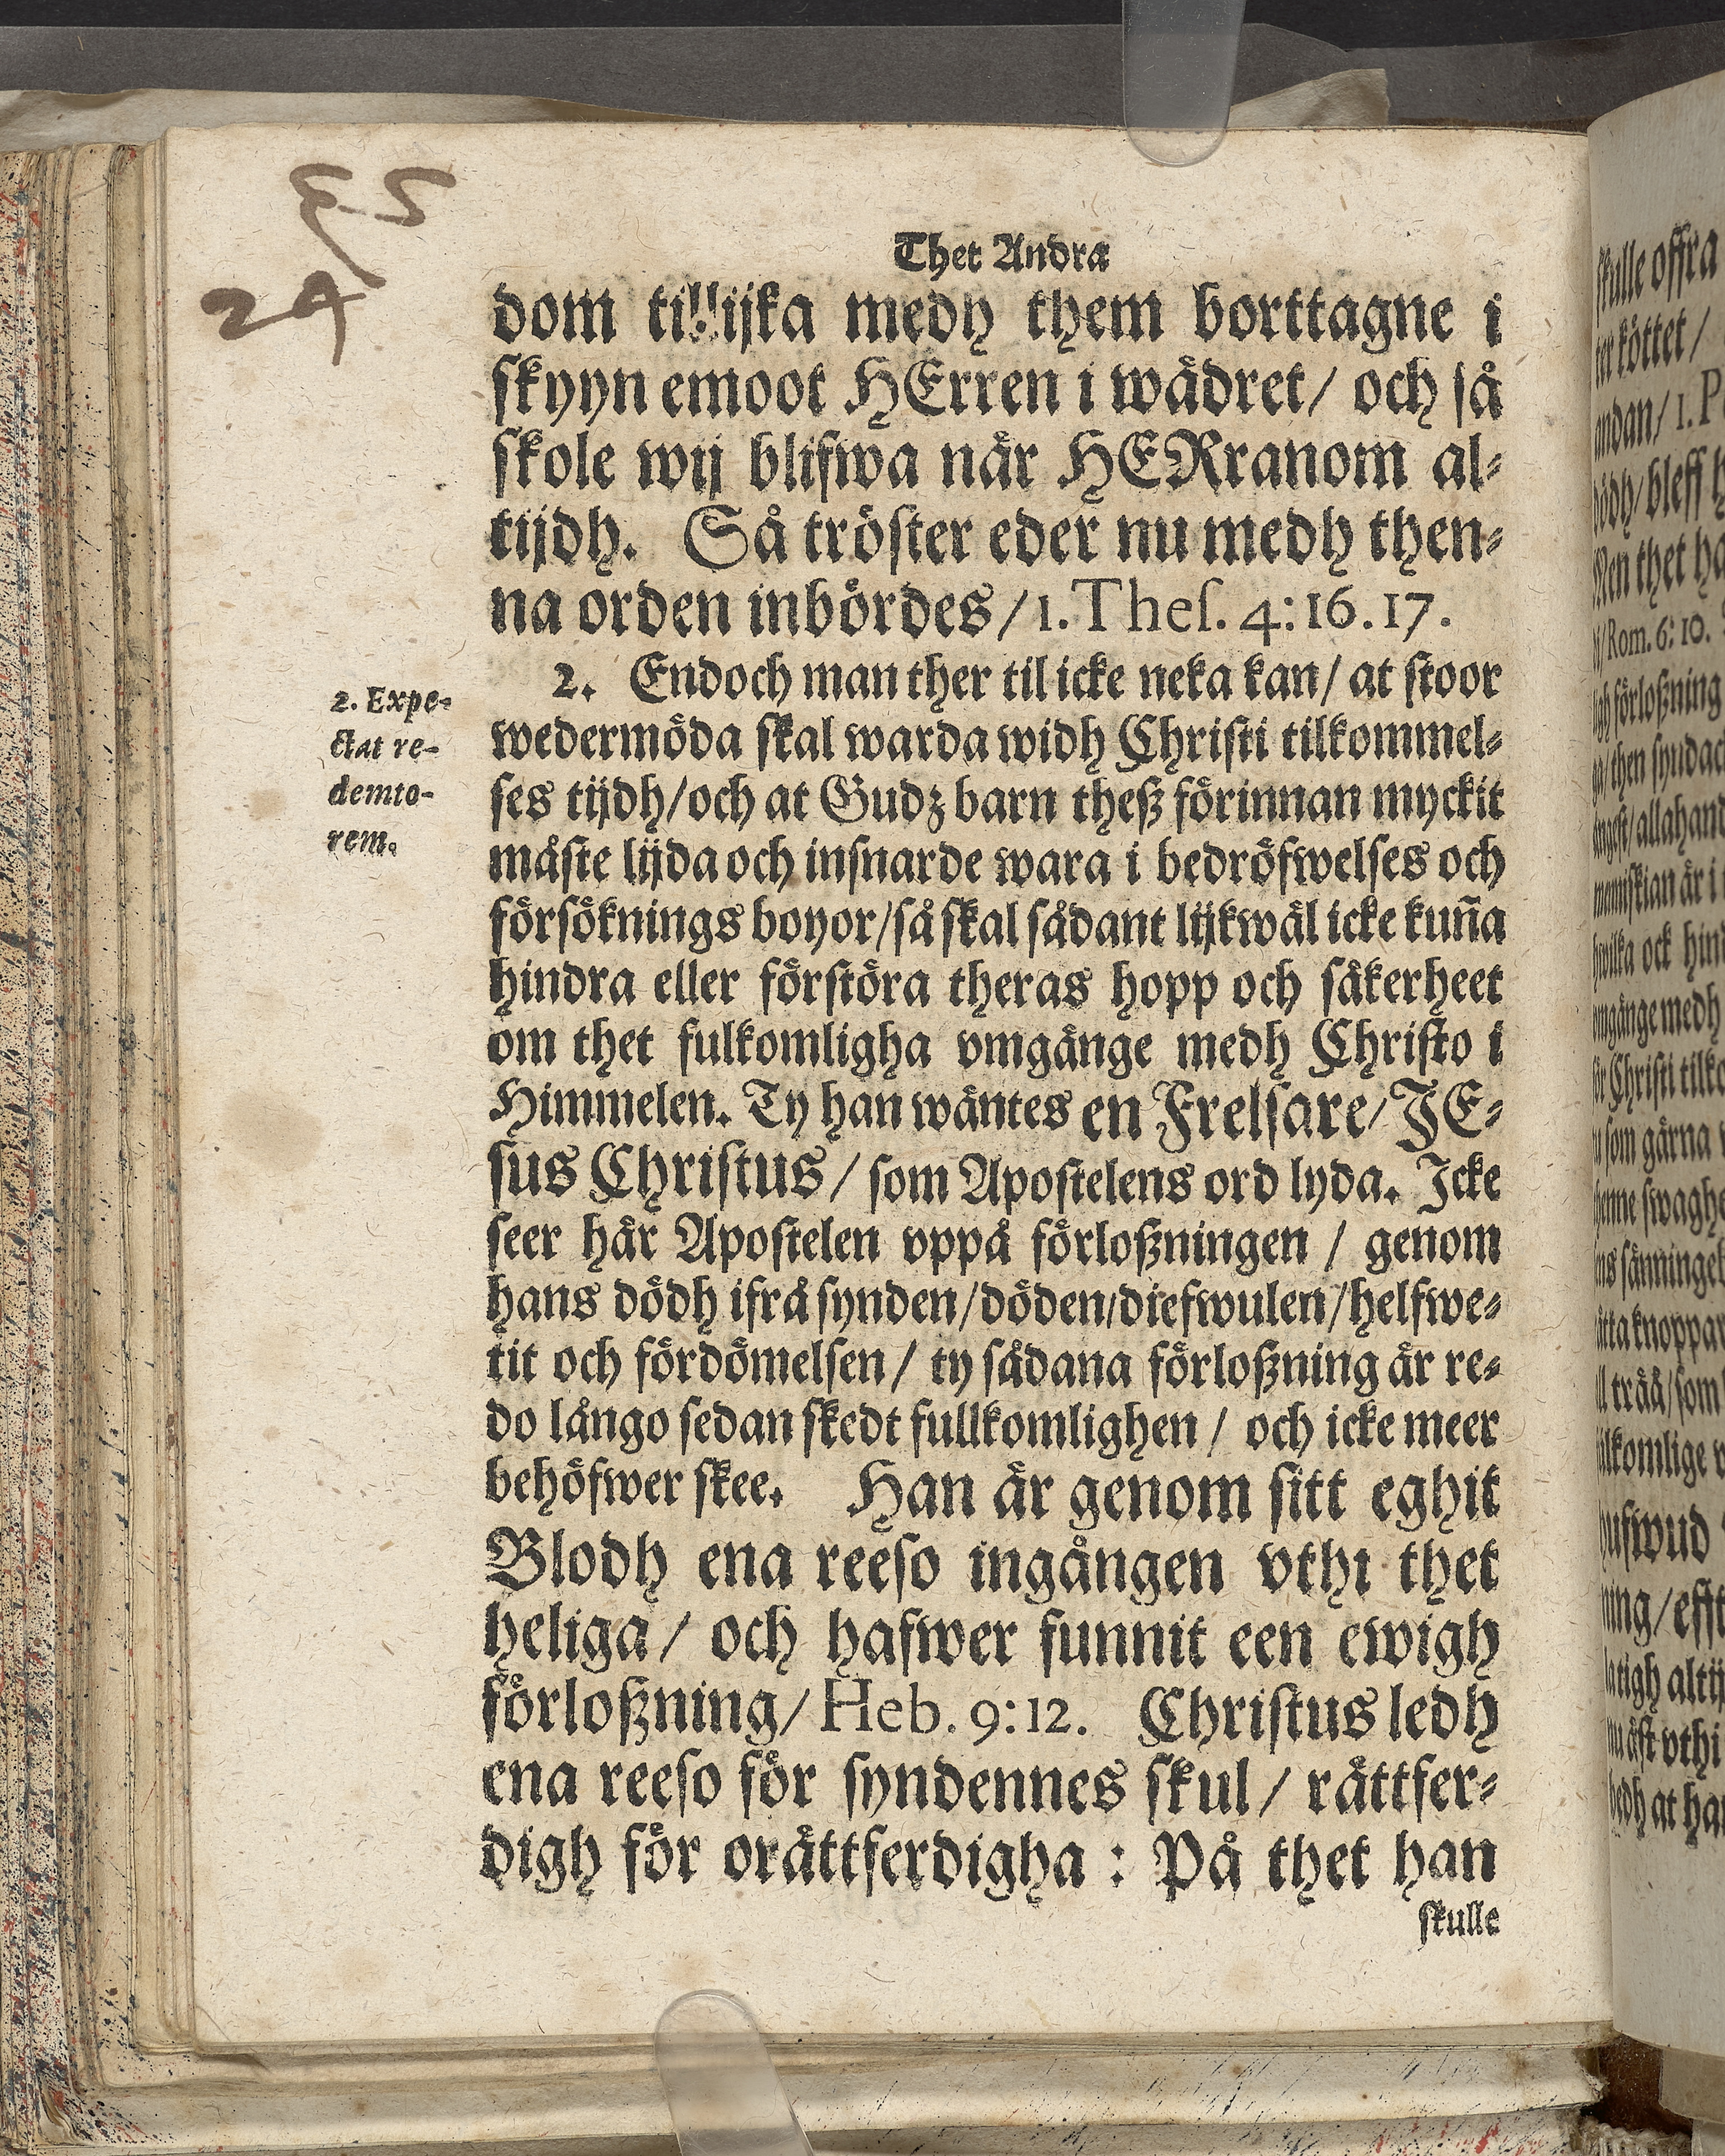 35
24
Thet Andra
dom tillijka medh them borttagne i
skyyn emoot HErren i wädret/ och så
skole wij blifwa när HERranom al-
tijdh. Så tröster eder nu medh then-
na orden inbördes/ 1. Thes. 4:16.17.
2. Endoch man ther til icke neka kan/ at stoor
wedermöda skal warda widh Christi tilkommel-
ses tijdh/och at Gudz barn theß förinnan myckit
måste lijda och insnarde wara i bedröfwelses och
försöknings boyor/så skal sådant lijkwäl icke kuña
hindra eller förstöra theras hopp och säkerheet
om thet fulkomligha vmgänge medh Christo i
Himmelen. Ty han wäntes en Frelsare/ JE-
sus Christus/ som Apostelens ord lyda. Icke
seer här Apostelen vppå förloßningen / genom
hans dödh ifrå synden/döden/diefwulen/helfwe-
tit och fördömelsen/ ty sådana förloßning är re-
do långo sedan skedt fullkomlighen/ och icke meer
behöfwer skee. Han är genom sitt eghit
Blodh ena reeso ingången vthi thet
heliga/ och hafwer funnit een ewigh
förloßning/ Heb. 9:12. Christus ledh
ena reeso för syndennes skul/ rättfer-
digh för orättferdigha : På thet han
skulle
2. Expe-
ctat re-
demto-
rem.
skulle offra
köttet/
andan/ 1.
bleff
Men thet
Rom. 6:10.
förloßning
then
allahand
menniskian är i
hwilka ock
omgänge medh
Christi
som gärna
knoppar
trää/som
vthi
at